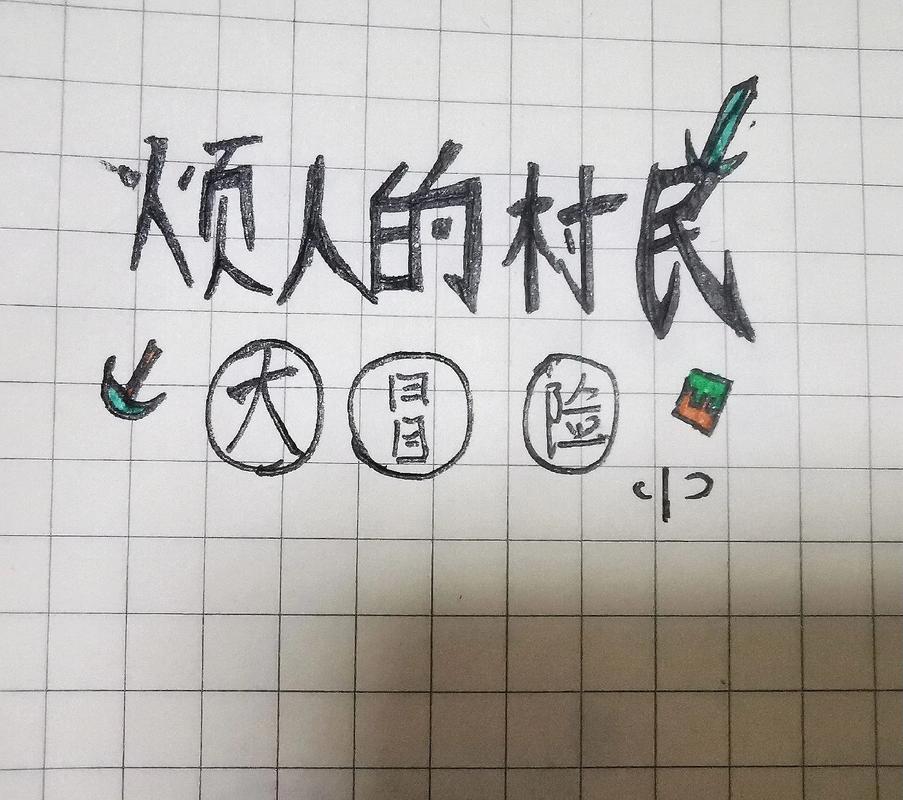 烦人的村民
大冒险